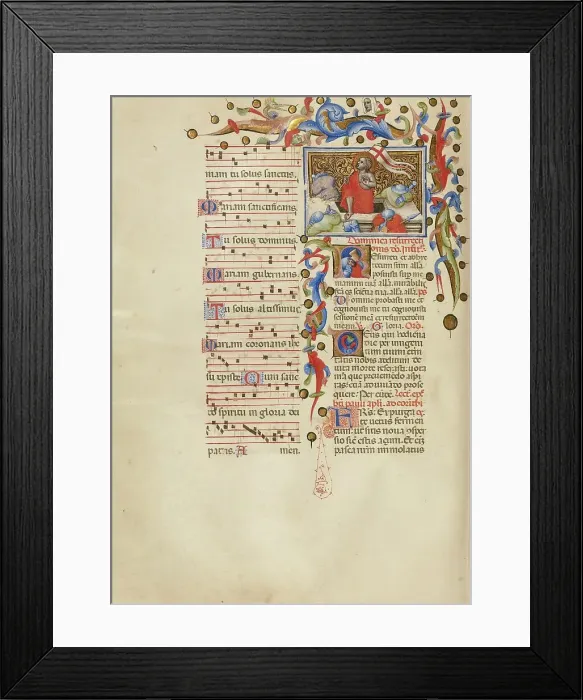 niam tu solus sanctus.
Mariam sanctificans
Tu solus dominus.
Mariam gubernans
Tu solus altissimus
Mariam coronans ihe
su xpiste. Cum sanc
to spiritu in gloria dei
patris. A men.
Dominica resurrecti
onis
Resurrexi et adhuc
tecum sum alla.
posuisti sup me
manum tuā alla.
sciētia tua alla. alla. ps
Domine probasti me et
cognouisti me tu cognouisti
sessionē meā et resurrectionē
meam. V. Gloria. Oro.
Deus qui hodierna
die per unigeni
tum tuum eter
nitatis nobis aditum de
uicta morte reserasti: uota
nra que preueniendo aspi
ras: etiā adiuuādo prose
quere. Per eūdē. Lect. epl̄e
bti pauli apli. ad corinthi
FRIS: Expurgate
uetus fermen
tum: ut sitis noua cōsper
sio sicut estis açimi. Et eī
pasca nrm immolatus